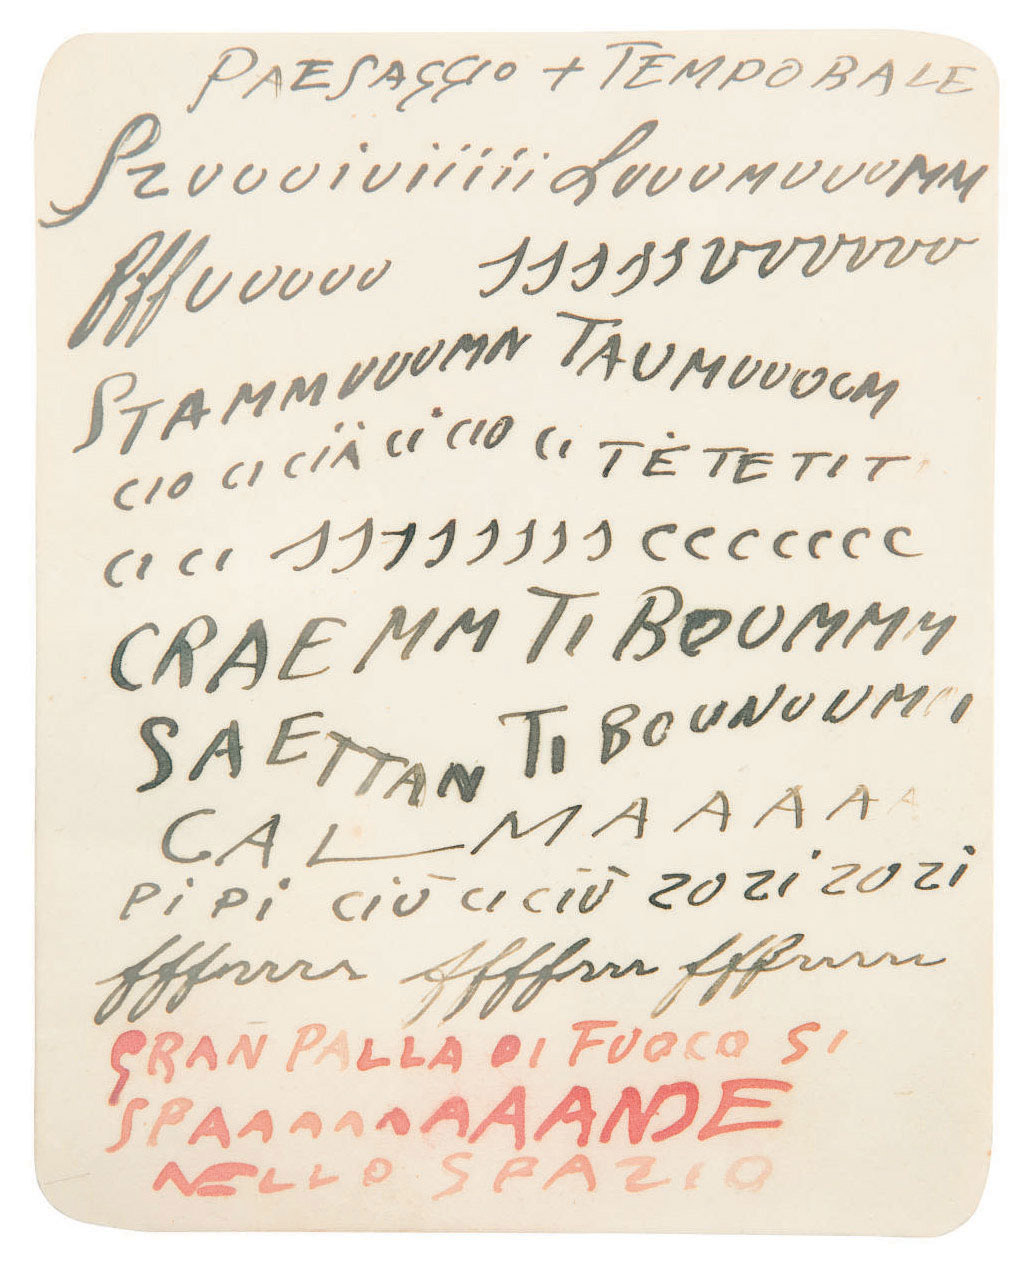 PAESAGGIO + TEMPORALE
Szuuuiuiiiiii LuuuMuuuuMM
fffuuuuu sssssvvvvvvv
STAMMUUUMN TAUMUUUOM
CIO CI CIÄ CI CIO CI TÈ TE TIT
CI CI sssssssss ccccccc
CRAE MM TI BOUMMM
SAETTAN TI BOUNUUM
CALMAAAAA
PiPi CIŪ CICIŪ ZOZi ZOZi
fffrrrrr ffffrrr fffrrrrr
GRAN PALLA DI FUOCO SI
SPAAAAAAAAANDE
NELLO SPAZIO